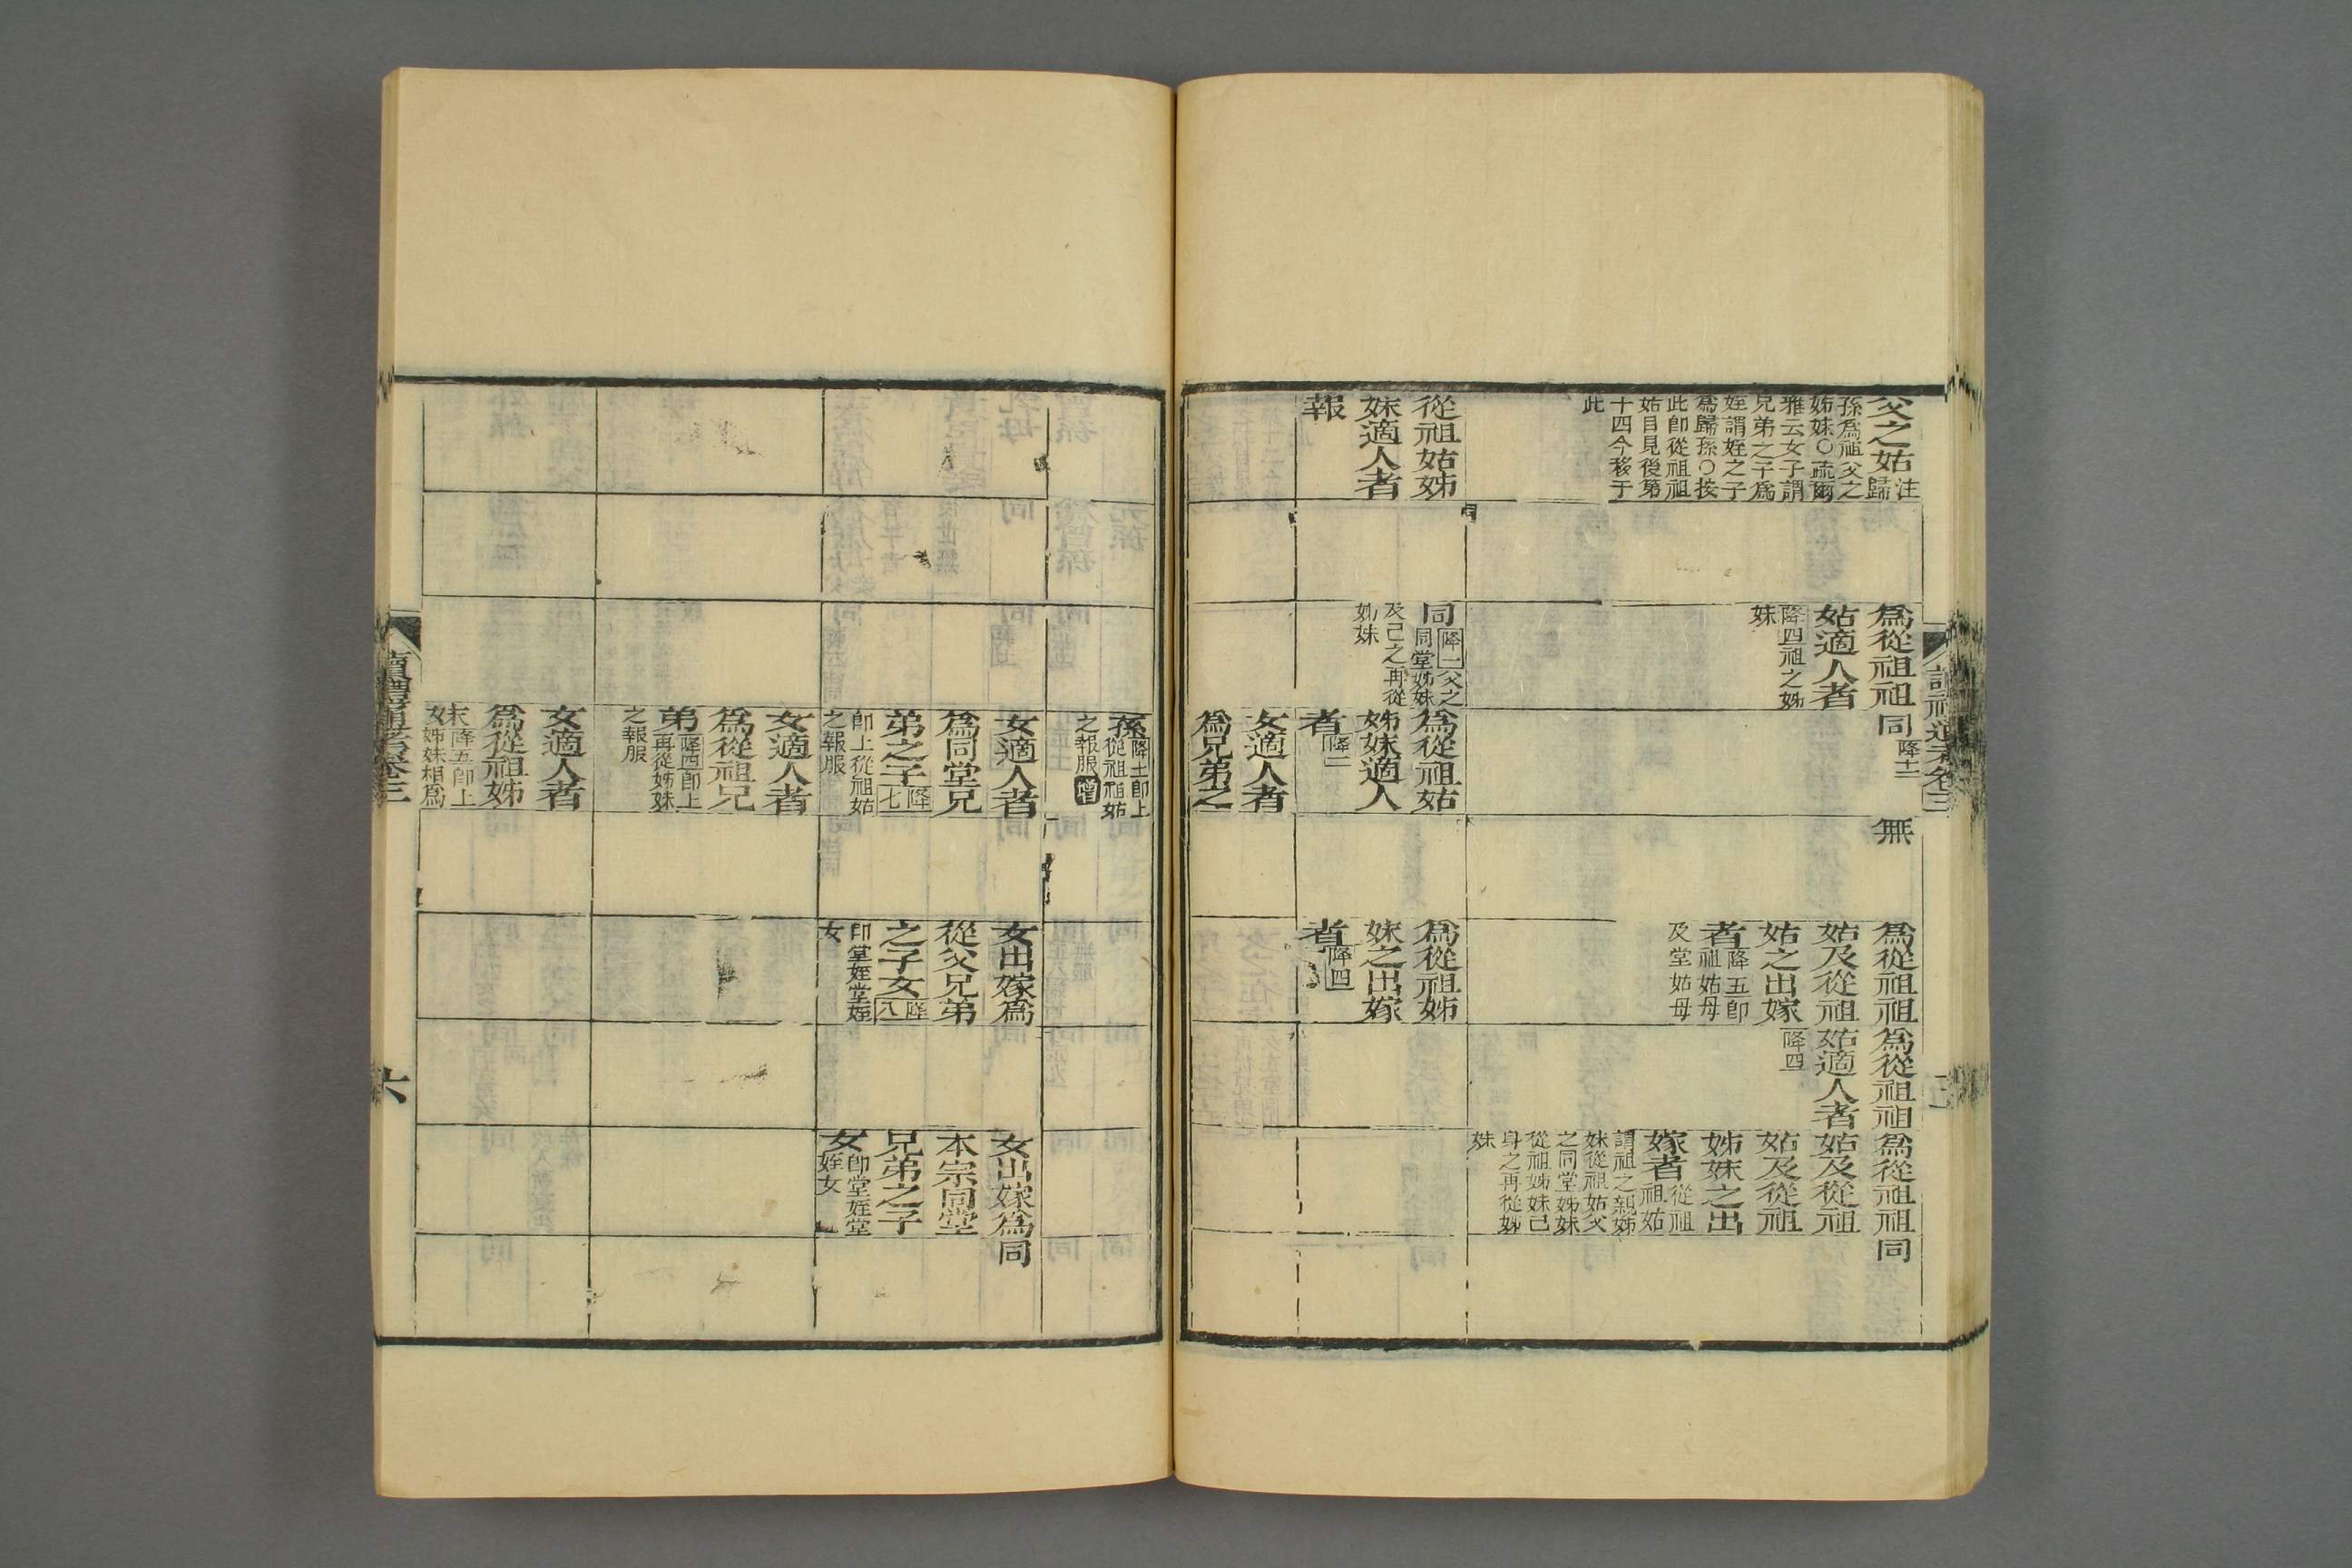 父之姑注歸
孫爲祖父之
姊妹○疏爾
雅云女子謂
兄弟之子爲
姪謂姪之子
爲歸孫○按
此卽從祖祖
姑目見後第
十四今移于
此
爲從祖祖
姑適人者
降四祖之姊
妹
同降十二
無
爲從祖祖
姑及從祖
姑之出嫁
者降五卽
祖姑姊母
及堂姑母
爲從祖祖
姑適人者
降四
爲從祖祖
姑及從祖
姑及從祖
姊妹之出
嫁者從祖
祖姑
謂祖之親姊
妹從祖姑父
之同堂姊妹
從祖姊妹己
身之再從姊
妹
同
從祖姑姊
妹適人者
報
同
同降一父之
同堂姊妹
及己之再從
姊妹
爲從祖姑
姊妹適人
者降二
爲從祖姊
妹之出嫁
者降四
女適人者
爲兄弟之
孫降十二卽上
從祖祖姑
之報服增
女適人者
爲同堂兄
弟之子降七
卽上從祖姑
之報服
女出嫁爲
從父兄弟
之子女降八
卽堂姪堂姪
女
女出嫁爲
本宗同堂
兄弟之子
女卽堂姪堂
姪女
同
女適人者
爲從祖兄
弟降四卽上
再從姊妹
之報服
女適人者
爲從祖姊
妹降五卽上
女姊妹相爲
讀禮通考卷三
六